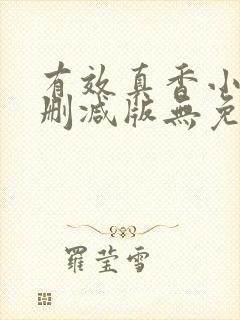 有效真香小
刪减版無免
羅莹雪